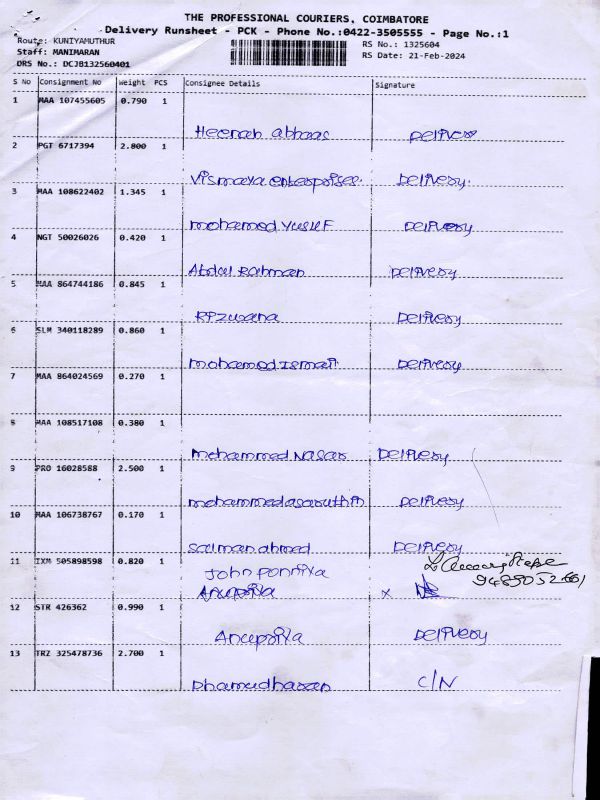 THE PROFESSIONAL COURIERS, COIMBATORE
Delivery Runsheet - PCK - Phone No.:0422-3505555 - Page No.:1
Route: KUNIYAMUTHUR
RS No.: 1325604
Staff: MANIMARAN
RS Date: 21-Feb-2024
DRS No.: DCJB132560401
S No Consignment No Weight PCS Consignee Details Signature
1 MAA 107455605 0.790 1
Heenah abbaas Delivery
2 PGT 6717394 2.800 1
Vismaya enterprises. Delivery.
3 MAA 108622402 1.345 1
mohamed yusuf Delivery
4 NGT 50026026 0.420 1
Abdul Rahman Delivery
5 MAA 864744186 0.845 1
Rizwana Delivery
6 SLM 340118289 0.860 1
mohamed Ismail Delivery
7 MAA 864024569 0.270 1
8 MAA 108517108 0.380 1
mohammed Nasar Delivery
9 PRO 16028588 2.500 1
mohammedasaruthin Delivery
10 MAA 106738767 0.170 1
Salman ahmed Delivery
11 IXM 505898598 0.820 1
John ponniya
Anupriya x
12 STR 426362 0.990 1
Anupriya Delivery
13 TRZ 325478736 2.700 1
Dhamudharan C/N